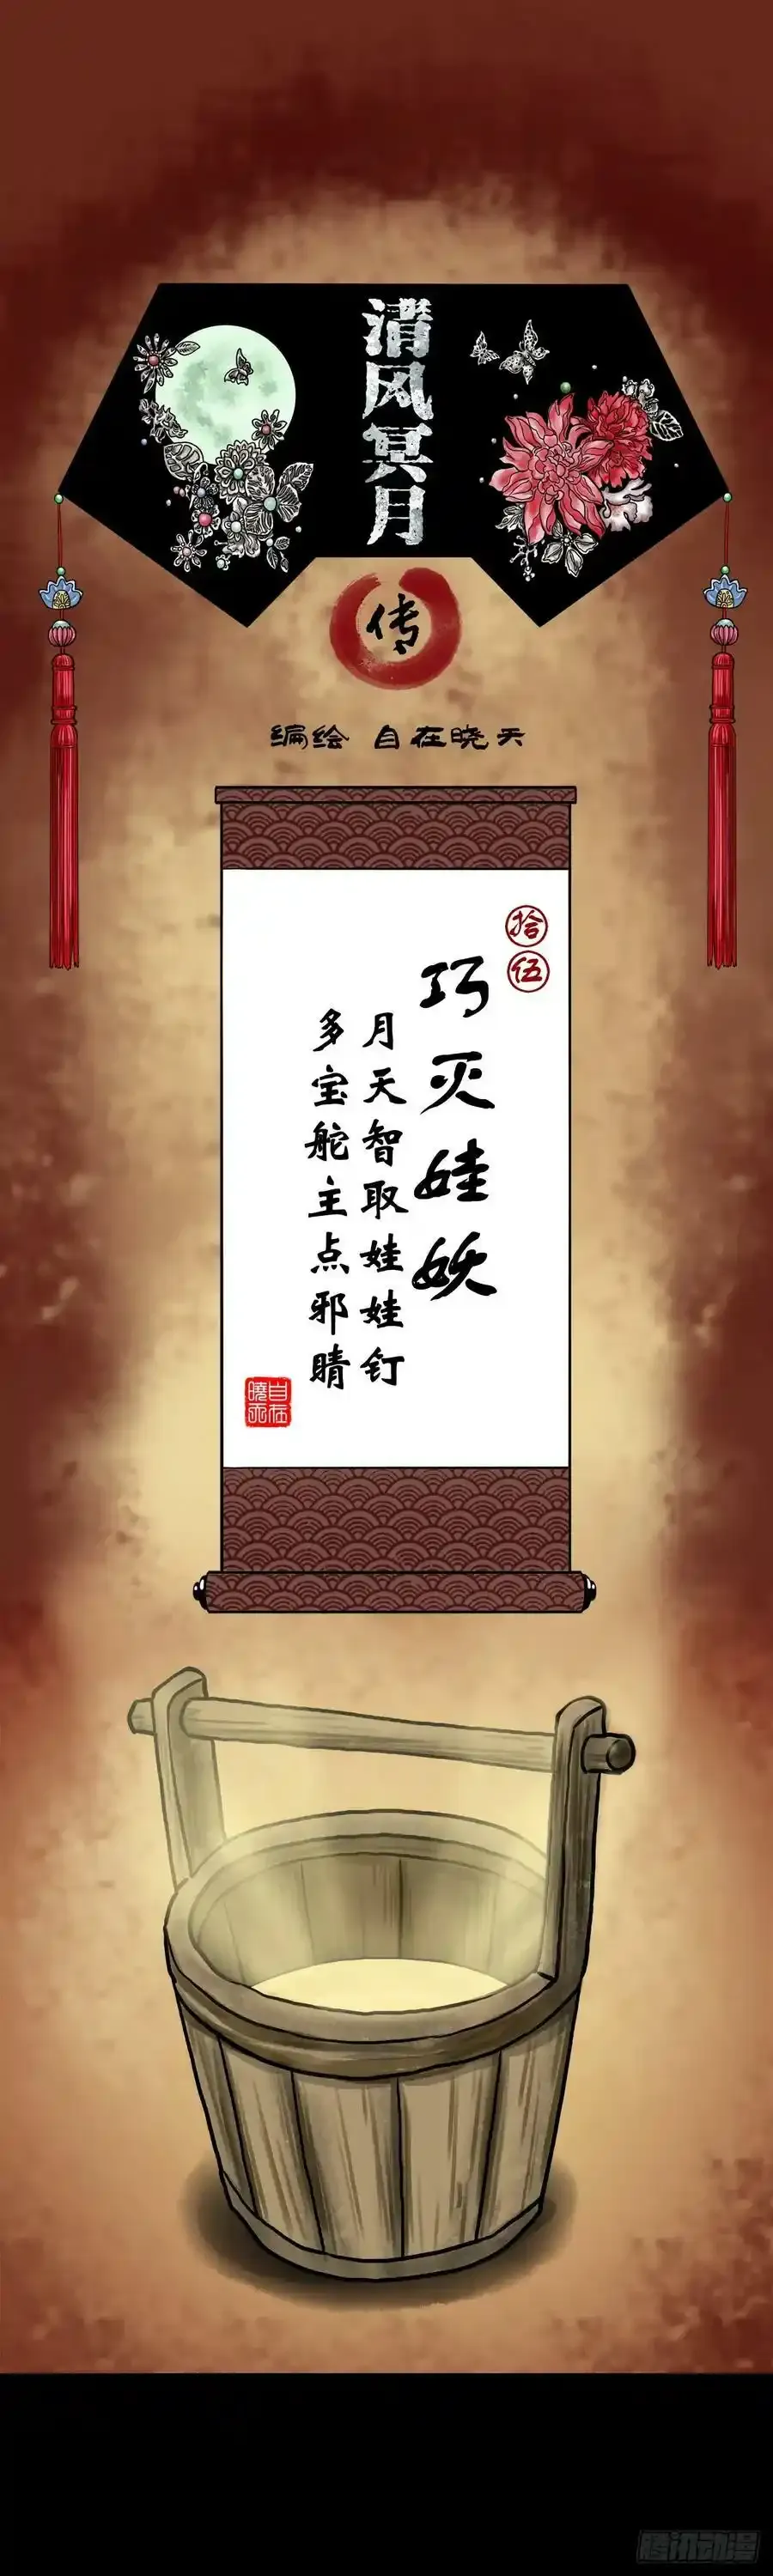 清风冥月
传
编绘 自在晓天
拾伍
巧灭娃妖
月天智取娃娃钉
多宝舵主点邪睛
自在曉天
腾讯动漫